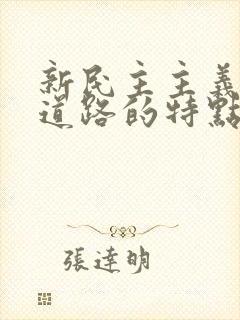 新民主主義
道路的特點
張達明